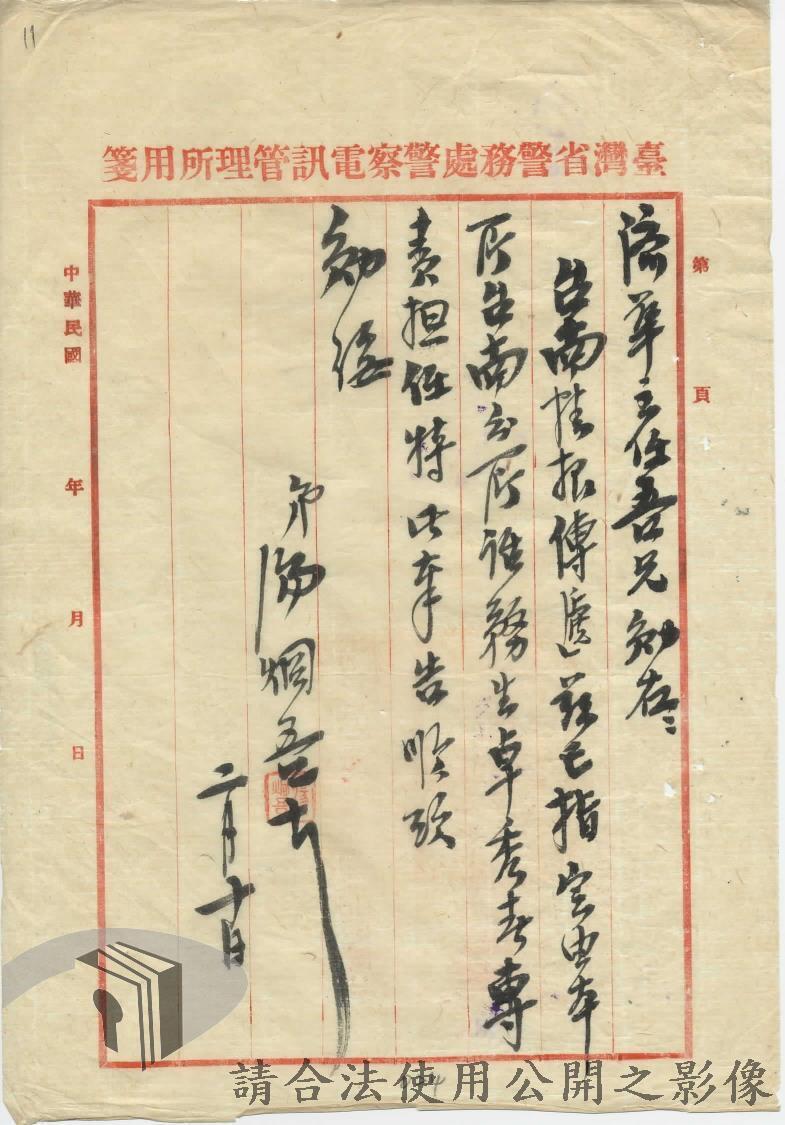 11
臺灣省警務處警察電訊管理所用箋
第 頁
濟華主任吾兄勛右：
台南情報傳遞茲已指定由本
所台南分所譯務生卓秀春專
責担任特此奉告順頌
勛綏
弟 炯吾
二月十日
中華民國 年 月 日
請合法使用公開之影像